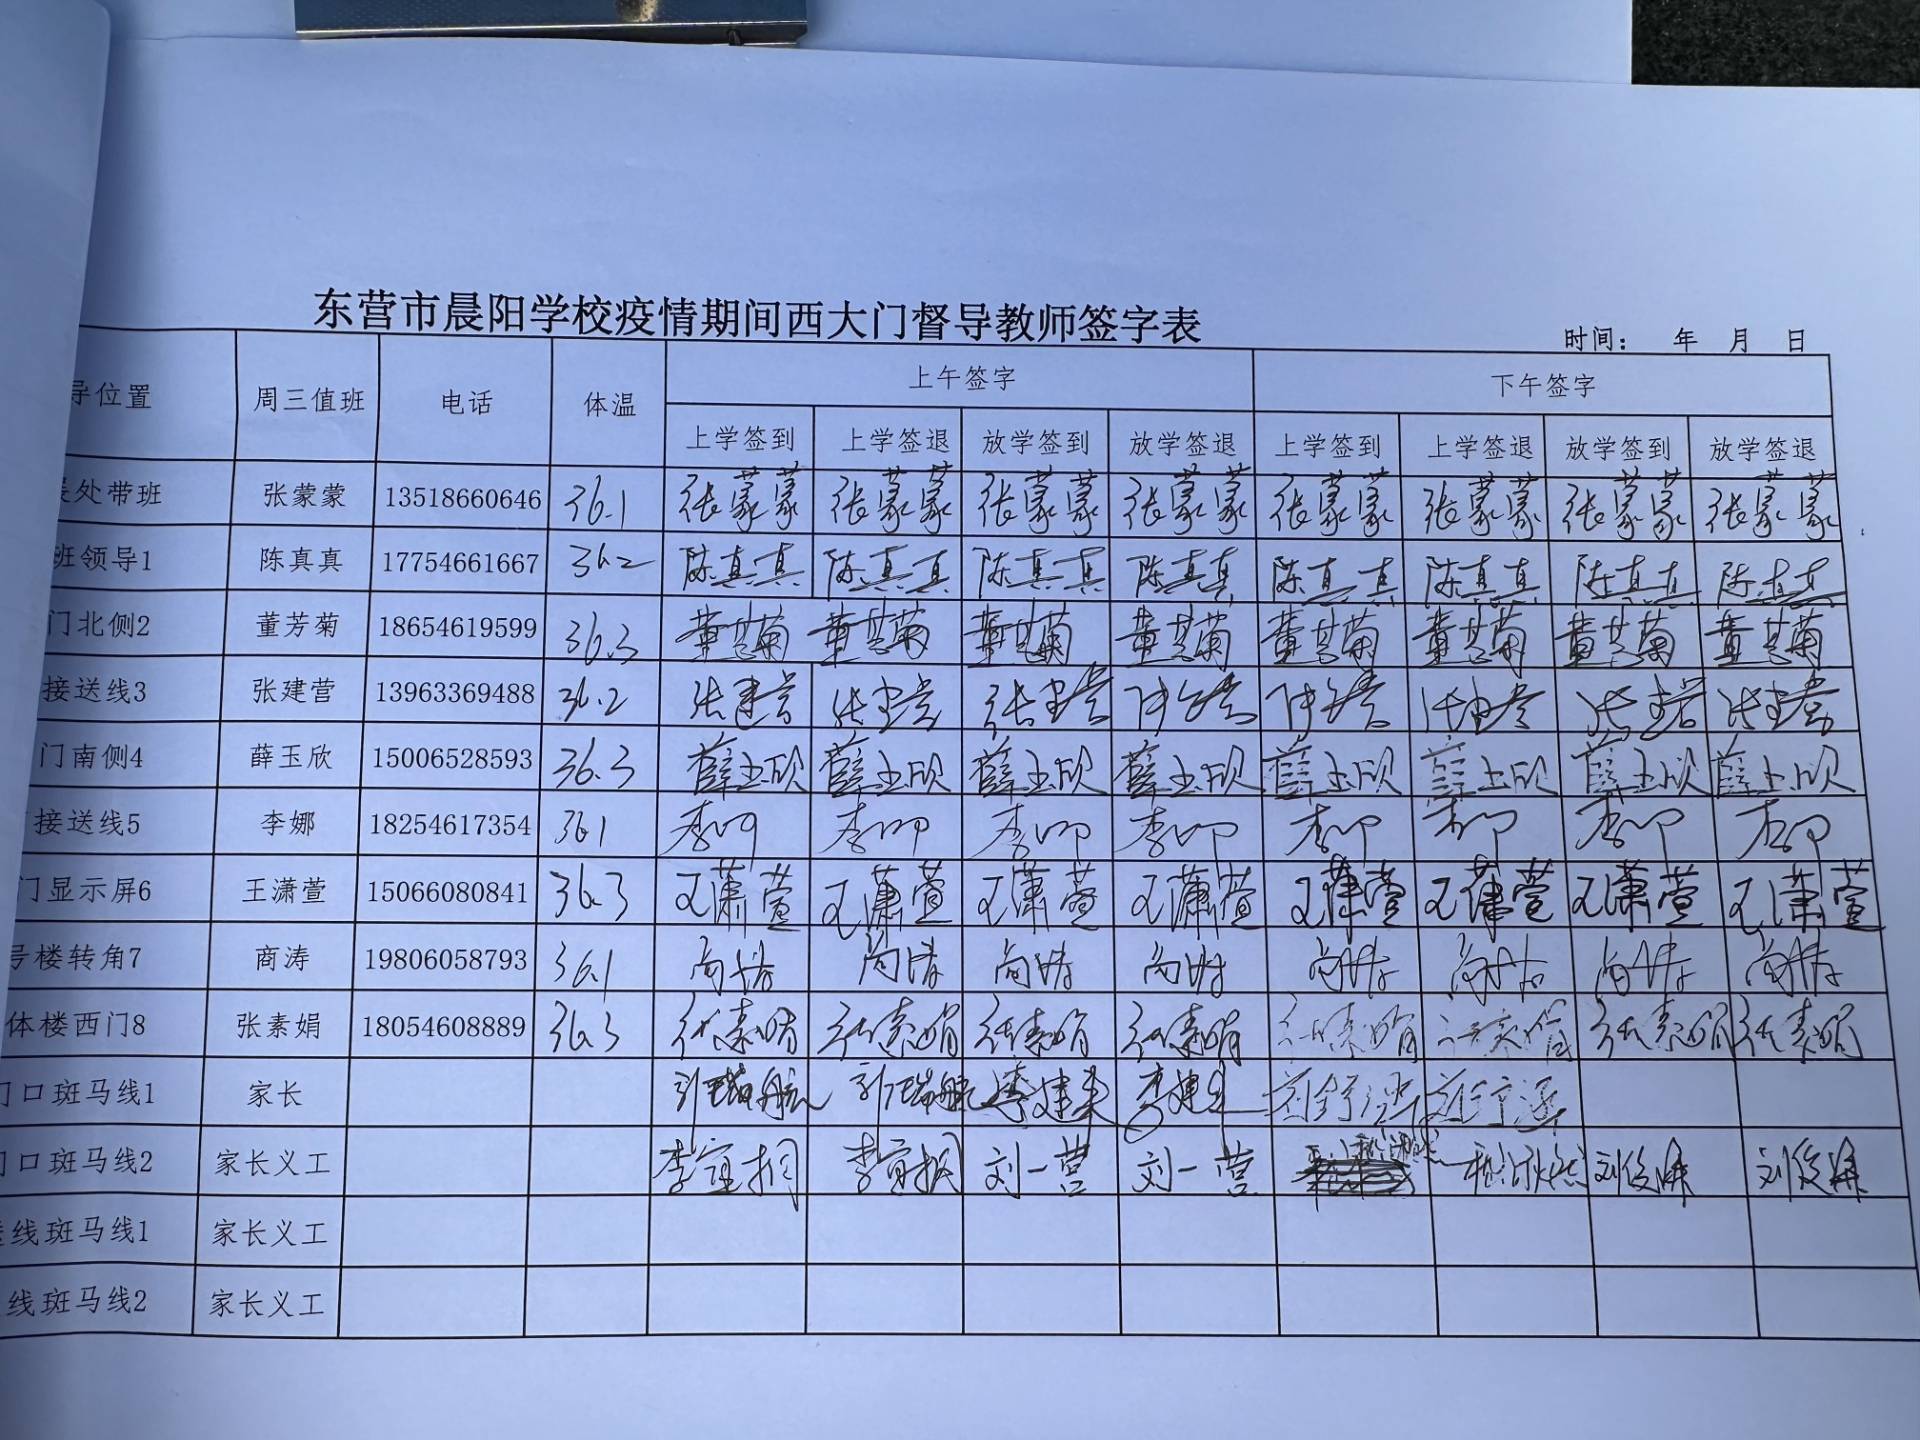 东营市晨阳学校疫情期间西大门督导教师签字表
时间： 年 月 日
导位置 周三值班 电话 体温 上午签字 下午签字
上学签到 上学签退 放学签到 放学签退 上学签到 上学签退 放学签到 放学签退
处带班 张蒙蒙 13518660646 36.1 张蒙蒙 张蒙蒙 张蒙蒙 张蒙蒙 张蒙蒙 张蒙蒙 张蒙蒙 张蒙蒙
班领导1 陈真真 17754661667 36.2 陈真真 陈真真 陈真真 陈真真 陈真真 陈真真 陈真真 陈真真
门北侧2 董芳菊 18654619599 36.3 董芳菊 董芳菊 董芳菊 董芳菊 董芳菊 董芳菊 董芳菊 董芳菊
接送线3 张建营 13963369488 36.2 张建营 张建营 张建营 张建营 张建营 张建营 张建营 张建营
门南侧4 薛玉欣 15006528593 36.3 薛玉欣 薛玉欣 薛玉欣 薛玉欣 薛玉欣 薛玉欣 薛玉欣 薛玉欣
接送线5 李娜 18254617354 36.1 李娜 李娜 李娜 李娜 李娜 李娜 李娜 李娜
门显示屏6 王潇萱 15066080841 36.3 王潇萱 王潇萱 王潇萱 王潇萱 王潇萱 王潇萱 王潇萱 王潇萱
号楼转角7 商涛 19806058793 36.1 商涛 商涛 商涛 商涛 商涛 商涛 商涛 商涛
体楼西门8 张素娟 18054608889 36.3 张素娟 张素娟 张素娟 张素娟 张素娟 张素娟 张素娟 张素娟
门口斑马线1 家长
门口斑马线2 家长义工 刘一营 刘一营
线斑马线1 家长义工
线斑马线2 家长义工